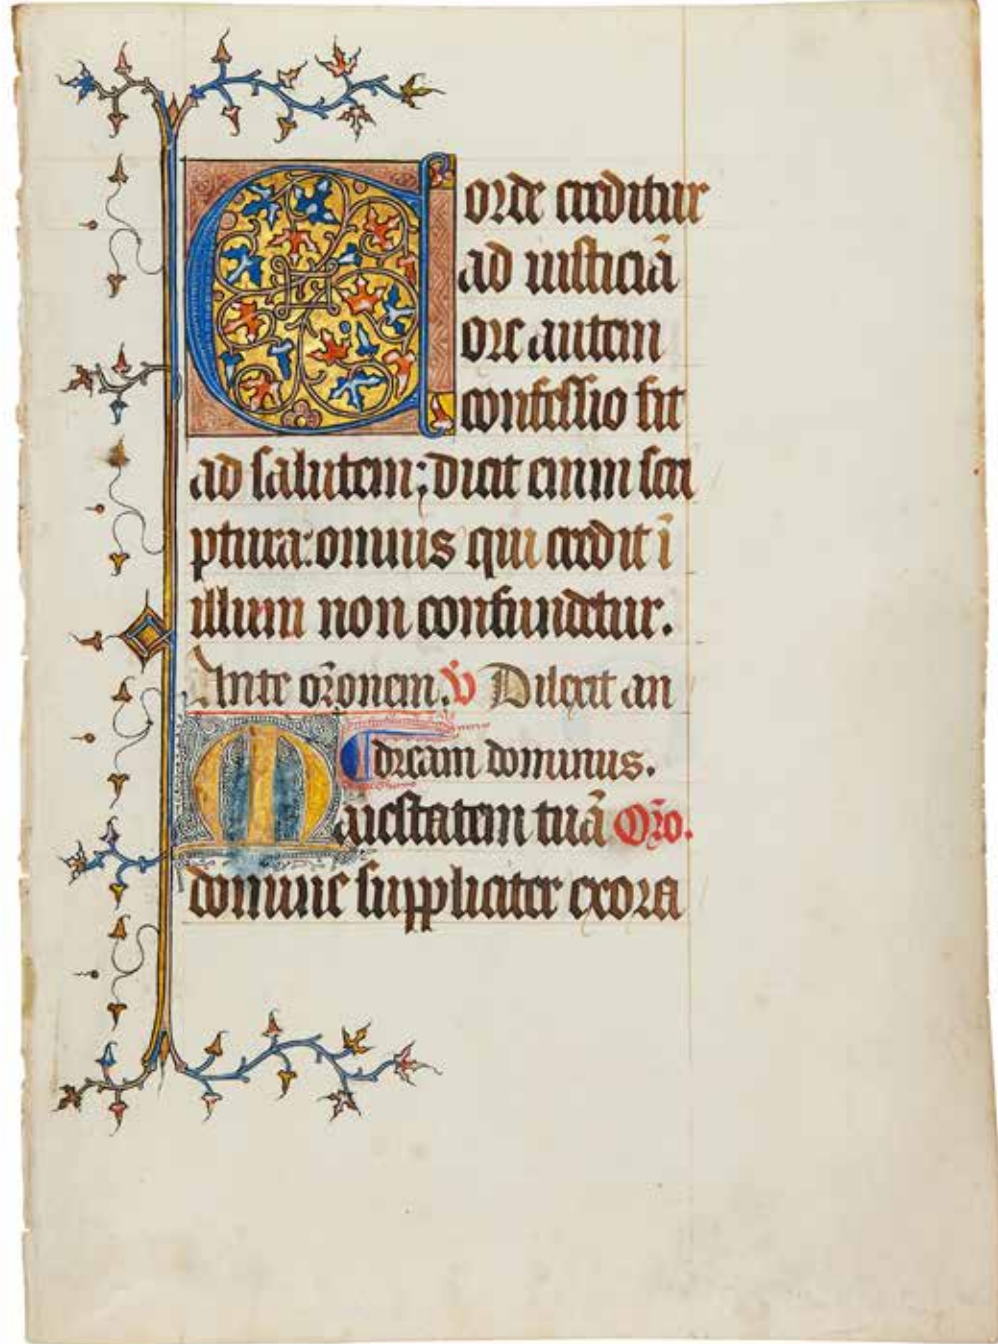 Corde creditur
ad iusticiā
ore autem
confessio fit
ad salutem; dicit enim scri
ptura: omnis qui credit ī
illum non confundetur.
Ante or̄onem. v̄ Dilexit an
dream dominus.
Maiestatem tuā Or̄o.
domine suppliciter exora